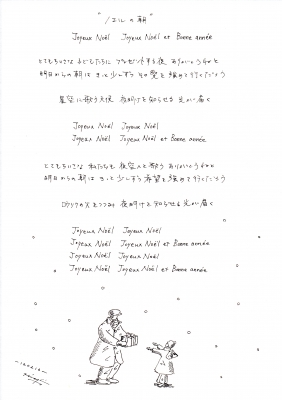 "ノエルの朝"
Joyeux Noël Joyeux Noël et Bonne année
とてもちいさな 子どもたちに プレゼントする夜 ありがとう
明日からの朝は きっと少しずつ の 強めて行くだろう
星空に歌う天使 夜明けを知らせる 光が届く
Joyeux Noël Joyeux Noël
Joyeux Noël Joyeux Noël et Bonne année
とてもちいさな 私たちも 夜空へと歌う ありがとう
明日からの朝は きっと少しずつ 希望を強めて行くだろう
をつつみ 夜明けを知らせる 光が届く
Joyeux Noël Joyeux Noël
Joyeux Noël Joyeux Noël et Bonne année
Joyeux Noël Joyeux Noël
Joyeux Noël Joyeux Noël et Bonne année